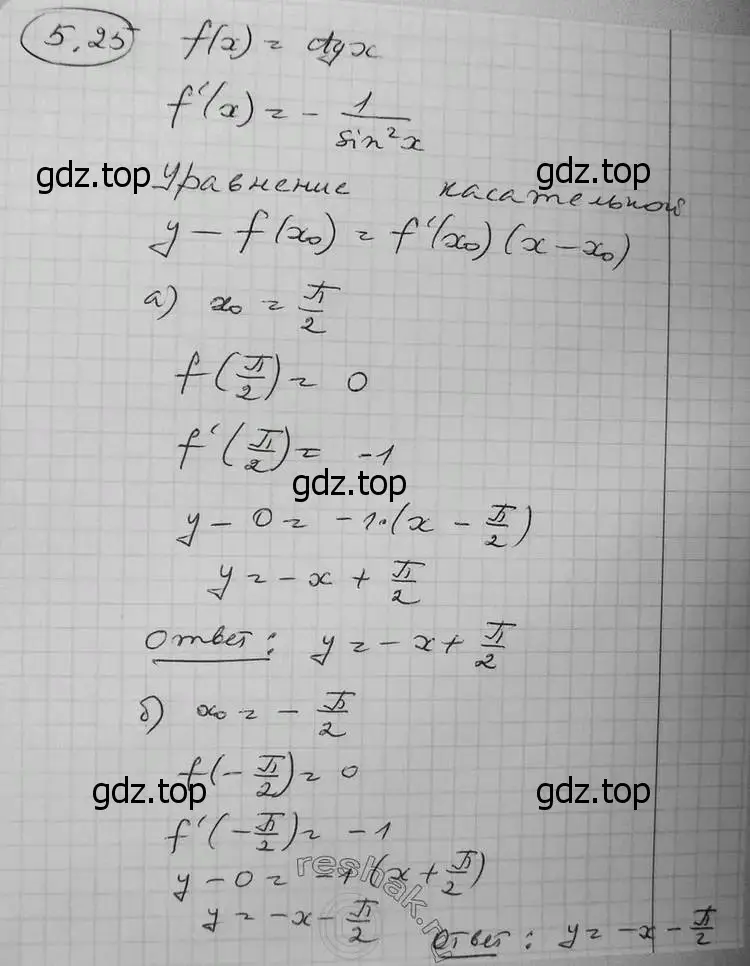 5.25 f(x) = ctg x
f'(x) = - 1/sin²x
gdz.top
gdz.top
Уравнение касательной
y - f(x₀) = f'(x₀)(x - x₀)
а) x₀ = π/2
f(π/2) = 0
f'(π/2) = -1
gdz.top
y - 0 = -1·(x - π/2)
y = -x + π/2
Ответ: y = -x + π/2
б) x₀ = - π/2
f(-π/2) = 0
gdz.top
gdz.top
f'(-π/2) = -1
y - 0 = -1·(x + π/2)
reshak.ru
y = -x - π/2
Ответ: y = -x - π/2